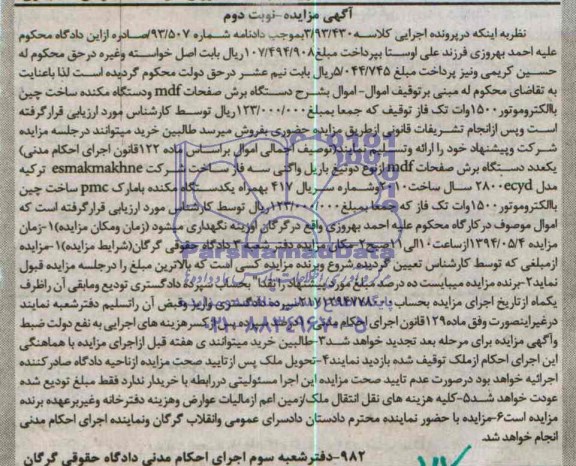 آگهی مزایده -نوبت دوم
نظربه اینکه درپرونده اجرایی کلاسه ۳/۹۳/۴۳۰بموجب دادنامه شماره ۹۳/۵۰۷صادره ازاین دادگاه محکوم
علیه احمد بهروزی فرزند علی اوسنا بپرداخت مبلغ۱۰۷/۴۹۴/۹۰۸ریال بابت اصل خواسته وغیره درحق محکوم له
حسین کریمی ونیز پرداخت مبلغ ۵/۰۴۴/۷۴۵ریال بابت نیم عشر درحق دولت محکوم گردیده است لذا باعنایت
به تقاضای محکوم له مبنی برتوقیف اموال-اموال بشرح دستگاه برش صفحات mdf ودستگاه مکنده ساخت چین
باالکتروموتور ۱۵۰۰وات تک فاز توقیف که جمعا بمبلغ۱۲۳/۰۰۰/۰۰۰ریال توسط کارشناس مورد ارزیابی قرارگرفته
است وپس ازانجام تشریفات قانونی ازطریق مزایده حضوری بفروش میرسد طالبین خرید میتوانند درجلسه مزایده
شرکت وپیشنهاد خود را ارائه وتسلیم نمایند(توصیف اجمالی اموال براساس ماده ۱۲۲قانون اجرای احکام مدنی)
یکعدد دستگاه برش صفحات mdf ازنوع دوتیغ باریل واکنی سه فاز ساخت شرکت esmakmakhne ترکیه
مدل ۲۸۰۰ecyd سال ساخت ۲۰۰۶وشماره سریال ۴۱۷ بهمراه یکدستگاه مکنده بامارک pmc ساخت چین
باالکتروموتور ۱۵۰۰وات تک فاز که جمعا بمبلغ ۱۲۳/۰۰۰/۰۰۰ریال توسط کارشناس مورد ارزیابی قرارگرفته است که
اموال موصوف درکارگاه محکوم علیه احمد بهروزی واقع درگرگان اوزینه نگهداری میشود (زمان ومکان مزایده)۱-زمان
مزایده ۱۳۹۴/۰۵/۴ازساعت۱۰الی ۱۱صبح۲-مکان مزایده دفتر شعبه ۳ دادگاه حقوقی گرگان(شرایط مزایده)۱-مزایده
ازمبلغی که توسط کارشناس تعیین گردیده شروع وبرنده مزایده کسی است که بالاترین مبلغ را درجلسه مزایده قبول
نماید۲-برنده مزایده میبایست ده درصد مبلغ مورد پیشنهاد رانقدا بحساب سپرده دادگستری تودیع ومابقی آن راظرف
یکماه ازتاریخ اجرای مزایده بحساب سپرده دادگستری واریز وقبض آن راتسلیم دفترشعبه نمایند
درغیراینصورت وفق ماده۱۲۹قانون اجرای احکام مدنی سپرده پس ازکسرهزینه های اجرایی به نفع دولت ضبط
وآگهی مزایده برای مرحله بعد تجدید خواهد شد۳-طالبین خرید میتوانند ی هفته قبل ازاجرای مزایده با هماهنگی
این اجرای احکام ازملک توقیف شده بازدید نمایند۴-تحویل ملک پس ازتایید صحت مزایده ازناحیه دادگاه صادرکننده
اجرائیه خواهد بود درصورت عدم تایید صحت مزایده این اجرا مسئولیتی دررابطه با خریدار ندارد فقط مبلغ تودیع شده
عودت خواهد شد۵-کلیه هزینه های نقل انتقال ملک اززمین اعم ازمالیات عوارض وهزینه دفترخانه وغیربرعهده برنده
مزایده است۶-مزایده با حضور نماینده محترم دادستان دادسرای عمومی وانقلاب گرگان ونماینده اجرای احکام مدنی
انجام خواهد شد.
۹۸۲-دفترشعبه سوم اجرای احکام مدنی دادگاه حقوقی گرگان
ParsNamadData
۰۲۱-۸۸۳۴۹۶۷۰-۵